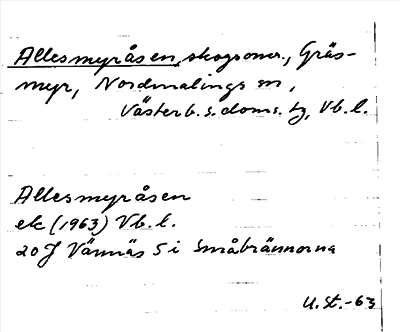 Allesmyråsen, skogsomr., Gräs-
myr, Nordmalings sn,
Västerb. s. doms. tg, Vb. l.
Allesmyråsen
ek (1963) Vb. l.
20 J Vännäs 5 i Småbrännorna
U. St. -63